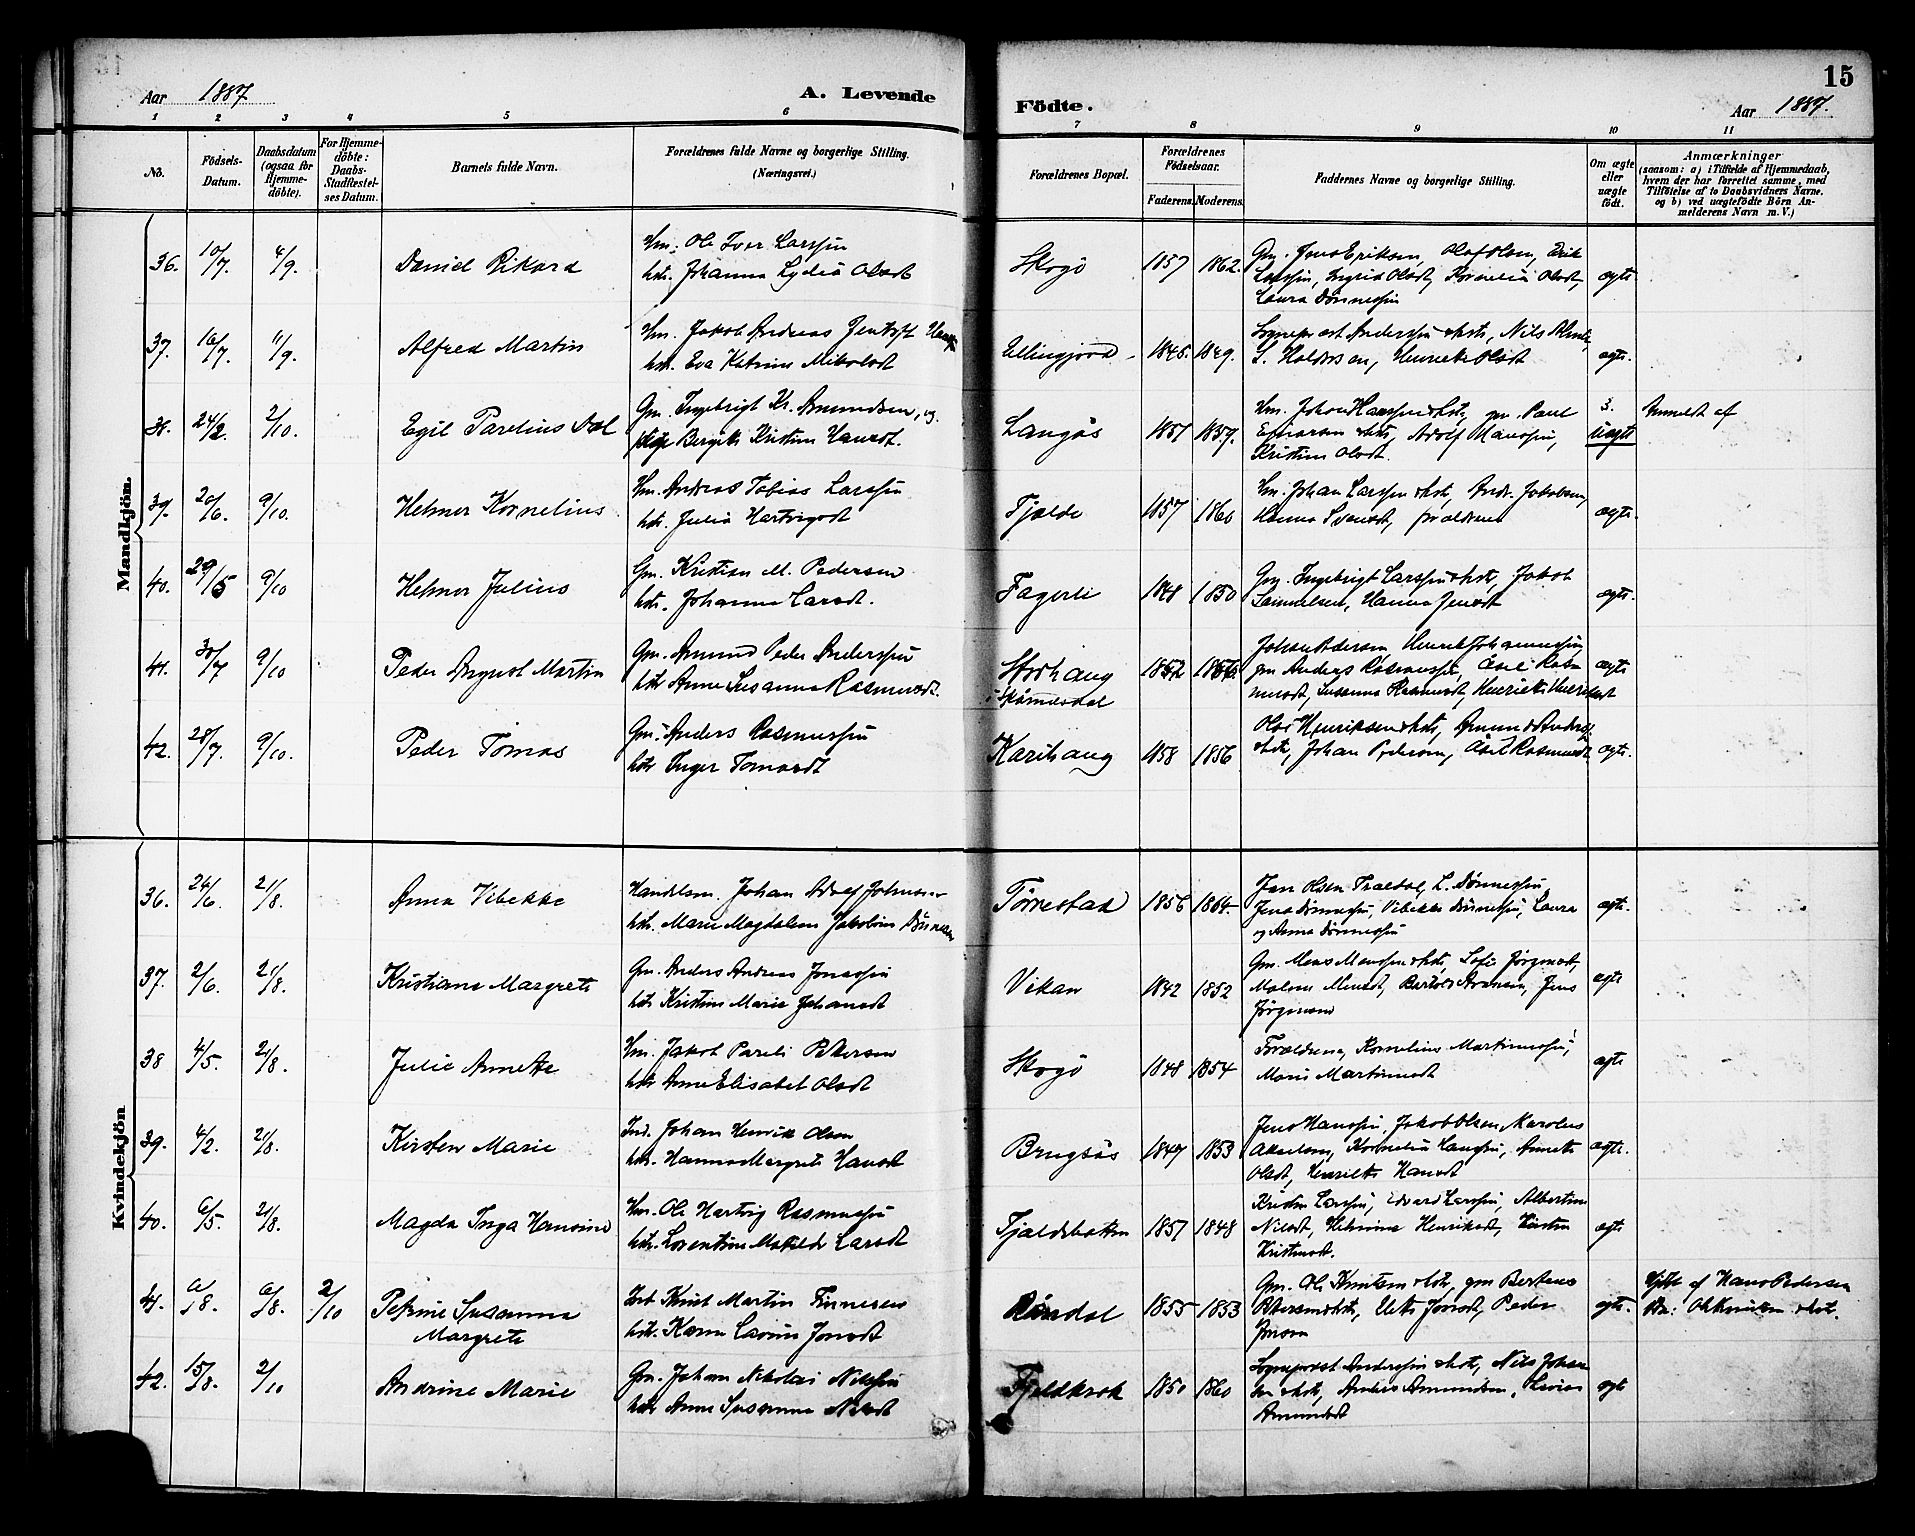 Aar 1887 A. Levende
Födte. Aar 1887.
15
1 2 3 4 5 6 7 8 9 10 11
No.
Födsels-
Datum.
Daabsdatum
(ogsaa for
Hjemme-
döbte).
For Hjemme-
döbte:
Daabs-
Stadfæstel-
ses Datum.
Barnets fulde Navn.
Forældrenes fulde Navne og borgerlige Stilling.
(Næringsvei.)
Forældrenes Bopæl.
Forældrenes
Födselsaar.
Faderens. Moderens.
Faddernes Navne og borgerlige Stilling.
Om ægte
eller
uægte
födt.
Anmærkninger
(saasom: a) i Tilfælde af Hjemmedaab,
hvem der har forrettet samme, med
Tilföielse af to Daabsvidners Navne,
og b) ved uægtefödte Börn An-
melderens Navn m. V.)
Mandkjön.
36. 10/7. 4/9. Daniel Rikard
Hm. Ole Iver Larssen
hst. Johanna Lydia Olsdt
Skogö 1857 1862.
Gm. Jens Eriksen, Olaf Olsen, Erik
Larssen, Ingrid Olsdt, Kornelia Olsdt,
Laura Dönnessen
ægte
37. 16/7. 11/9. Alfred Martin
Hm. Jakob Andreas Jentoft
hst. Eva Katrine Mikalsdt
Ellingjord 1846. 1849.
Sogneprest Anderssen & hst,
Henrikke Olsdt
ægte.
38. 24/2. 2/10. Egil Parelius Dal
Gm. Ingebrigt Kr. Amundsen, og
pige Bergitte Kristine Hansdt.
Langås 1857 1859.
Hm. Johan Hanssen & hst, gm. Paul
Adolf Hanssen,
Kristine Olsdt.
3.
uægte
Anmeldt af
39. 20/6. 9/10. Helmer Kornelius
Hm. Andreas Tobias Larssen
hst. Julia Hartvigsdt
Fjelde 1857 1860
Hm. Johan Larssen & hst, Andr. Jakobsen,
Hanna Svensdt, forældrene
ægte.
40. 29/5 9/10 Helmer Julius
Gm. Kristian M. Pedersen
hst. Johanna Larsdt.
Fagerli 1848 1850
Gm. Ingebrigt Larssen & hst, Jakob
Samuelsen, Hanna Jensdt
ægte.
41. 30/7 9/10 Peder August Martin
Gm. Amund Peder Anderssen
hst Anne Susanna Rasmusdt.
Storhaug
i Skåmesdal
1852 1856.
Johan Pedersen, Henrik Johannessen
gm Anders Rasmussen, Åsel Ras
musdt, Susanna Rasmusdt, Henrikke Henriksdt
ægte
42. 28/7. 9/10. Peder Tomas
Gm. Anders Rasmussen
hst Inger Tomasdt
Karihaug 1858 1856
Olai Henriksen & hst, Amund Anders.
& hst, Johan Pedersen, Åsel Rasmusdt
ægte.
Kvindekjön
36. 24/6. 21/8. Anna Vibekke
Handelsm. Johan Adolf Johnsen
hst. Marie Magdalena Jakobine Dönnessen
Törrestad 1856 1864.
Jens Olsen Traldal, L. Dönnessen,
Jens Dönnessen, Vibekke Dönnessen, Laura
og Anna Dönnessen
ægte.
37. 2/6. 21/8. Kristiane Margrete
Gm. Anders Andreas Jonassen
hst Kristine Marie Johansdt
Vikan 1842 1852
Gm. Mons Monssen & hst, Sofie Jörgensdt,
Jens
Jörgensen
ægte
38 4/5. 21/8. Julie Annette
Hm. Jakob Pareli Petersen
hst Anne Elisabet Olsdt
Skogö 1848 1854
Forældrene, Kornelius Martinussen,
Maria Martinusdt
ægte
39. 4/2. 21/8. Kirsten Marie
Ind. Johan Henrik Olsen
hst. Hanna Margrete Hansdt
Brugsås 1847 1853
Jens Hanssen, Jakob Olsen, Karolius
Akselsen, Kornelia Hanssen, Annette
Olsdt, Henrikke Hansdt
ægte.
40. 6/5. 21/8. Magda Inga Hansine
Hm. Ole Hartvig Rasmussen
hst. Lorentine Matilde Larsdt
Fjeldsbotten 1857 1848
Kristen Larssen, Edvard Larssen, Albertine
Nilsdt, Helmine Henriksdt, Kirsten
Kristensdt.
ægte
41. 6/8. 6/8. 2/10 Petrine Susanna
Margrete
Ind. Knut Martin Finnesen
hst. Karen Lavine Jonsdt
Råndal 1855 1853
Gm. Ole Knutsen & hst, gm Bertens
Petersen & hst, Elete Jonsdt, Peder
Jonsen
ægte.
Hjdbt af Hans Pedersen
Vn: Ole Knutsen & hst.
42. 15/8. 2/10 Andrine Marie
Gm. Johan Nikolai Nilssen
hst Anne Susanna Nilsdt
Fjeldkrok 1850 1860
Sogneprest Anderssen & hst, Nils Johan
sen & hst, Anders Amundsen, Lovise
Amundsdt
ægte